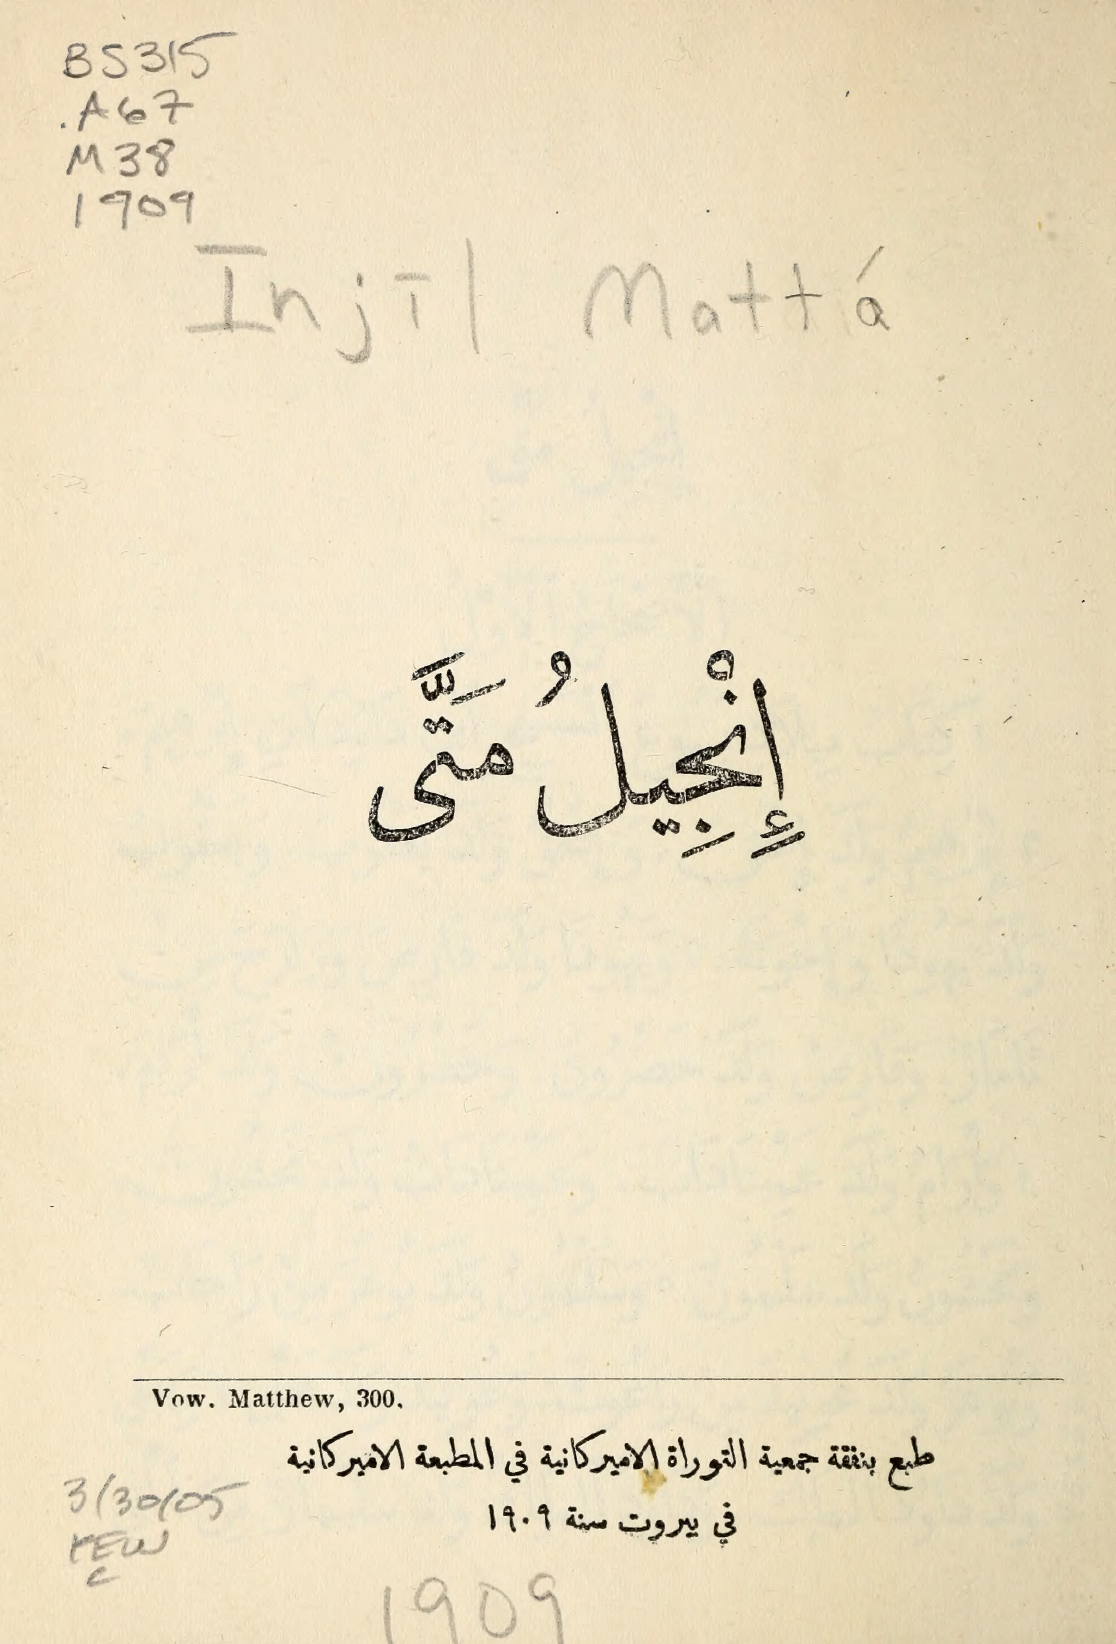 BS315
.A67
M38
1909
Injīl Mattá
إِنْجِيلُ مَتَّى
Vow. Matthew, 300.
طبع بنفقة جمعية التوراة الاميركانية في المطبعة الاميركانية
في بيروت سنة ١٩٠٩
3/30/05
1909